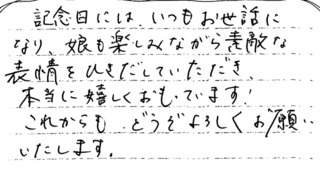 記念日には、いつもお世話に
なり、娘も楽しみながら素敵な
表情をひきだしていただき、
本当に嬉しくおもっています!
これからも どうぞよろしくお願い
いたします。